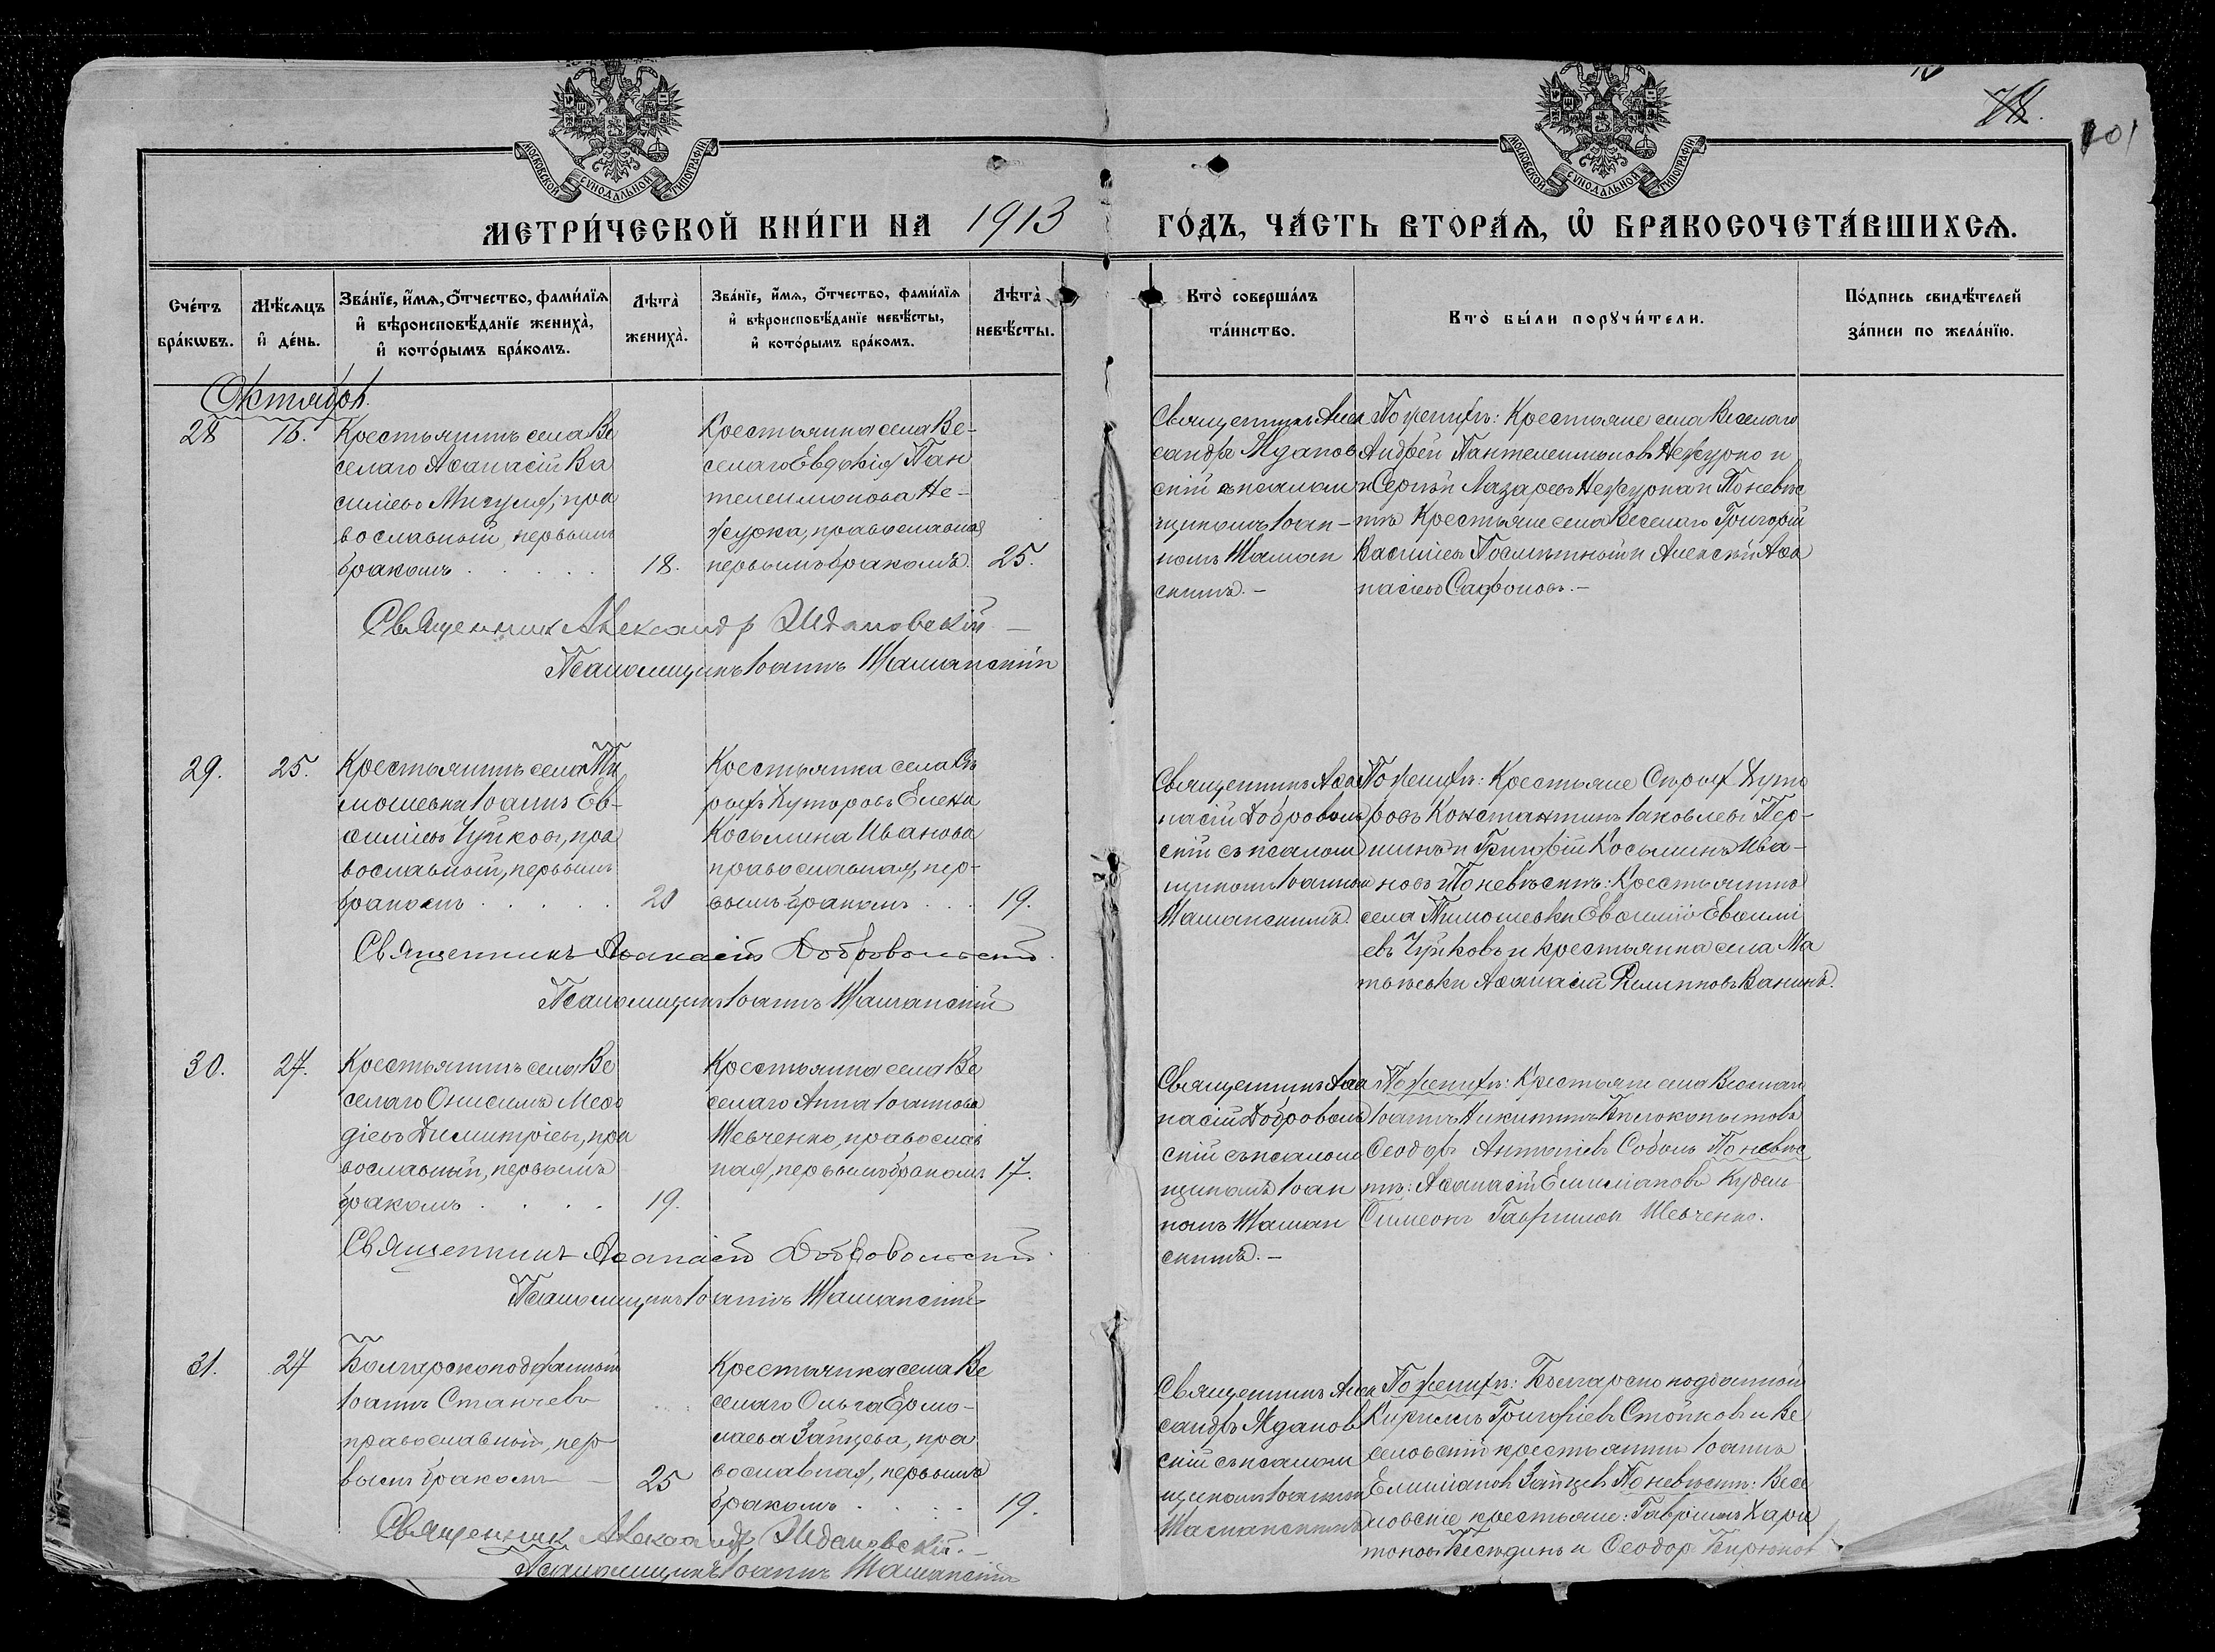 МОСКОВСКОЙ СѴНОДАЛЬНОЙ ТИПОГРАФІИ
МОСКОВСКОЙ СѴНОДАЛЬНОЙ ТИПОГРАФІИ
78.
101
МЕТРИ́ЧЕСКОЙ КНИ́ГИ НА 1913 ГО́ДЪ, ЧА́СТЬ ВТОРА́Ѧ, Ѡ҆ БРАКОСОЧЕТА́ВШИХСѦ.
Сче́тъ
бра́кѡвъ.
Мѣ́сѧцъ
и҆ де́нь.
Зва́нїе, и҆́мѧ, о҆́тчество, фами́лїѧ
и҆ вѣроисповѣ́данїе жениха̀,
и҆ кото́рымъ бра́комъ.
Лѣта̀
жениха̀.
Зва́нїе, и҆́мѧ, о҆́тчество, фами́лїѧ
и҆ вѣроисповѣ́данїе невѣ́сты,
и҆ кото́рымъ бра́комъ.
Лѣта̀
невѣ́сты.
Кто̀ соверша́лъ
та́инство.
Кто̀ бы́ли порꙋчи́тели.
По́дпись свидѣ́телей
за́писи по жела́нїю.
Октябрь.
28
16.
Крестьянинъ села Ве
селаго Аѳанасій Ва
силіевъ Мигуля, пра
вославный, первымъ
бракомъ . . . . .
18.
Крестьянка села Ве-
селаго Евдокія Пан
телеимонова Не-
журка, православная
первымъ бракомъ.
25.
Священникъ Алек
сандръ Ждановъ
скій съ псалом
щикомъ Іоан-
номъ Шаман
скимъ. -
По женихѣ: Крестьяне села Веселаго
Андрей Пантелеимоновъ Нежурко и
Сергѣй Лазаревъ Нежурка и По невѣс
тѣ Крестьяне села Веселаго Григорій
Василіевъ и Алексѣй Аѳа
насіевъ Сафоновъ. -
Священник Александр Ждановскій —
Псаломщикъ Іоаннъ Шаманскій
29.
25.
Крестьянинъ села Ти
мошевки Іоаннъ Ев-
ѳиміевъ Чуйковъ, пра
вославный, первымъ
бракомъ . . . . .
20
Крестьянка села Сѣ
рыхъ Хуторовъ Елена
Косьмина Иванова
православная, пер-
вымъ бракомъ . . .
19.
Священникъ Аѳа
насій Добровольс
скій съ псалом
щикомъ Іоанномъ
Шаманскимъ.
По женихѣ: Крестьяне Сѣрыхъ Хуто
ровъ Константинъ Іаковлевъ Пер-
шинъ и Григорій Косьминъ Ива-
новъ и По невѣстѣ: Крестьянинъ
села Тимошевки Евѳимій Евѳимі
евъ Чуйковъ и крестьянинъ села Ма
тѣевки Аѳанасій Филипповъ Ванинъ.
Священникъ Аѳанасій Добровольскій.
Псаломщикъ Іоаннъ Шаманскій
30.
27.
Крестьянинъ села Ве
селаго Онисимъ Меѳо
діевъ Димитріевъ, пра
вославный, первымъ
бракомъ . . . .
19.
Крестьянка села Ве
селаго Анна Іоаннова
Шевченко, православ
ная, первымъ бракомъ.
17.
Священникъ Аѳа
насій Доброволь
скій съ псалом
щикомъ Іоан
номъ Шаман
скимъ. -
По женихѣ: Крестьяне села Веселаго
Іоаннъ Никитинъ Бѣлокопытовъ
Ѳеодоръ Антоніевъ Соболь По невѣс
тѣ: Аѳанасій Емиліановъ Кудель
Симеонъ Гавриловъ Шевченко.
Священникъ Аѳанасій Добровольскій.
Псаломщикъ Іоаннъ Шаманскій
31.
27
Болгарскоподданный
Іоаннъ Станчевъ
православный, пер
вымъ бракомъ —
25
Крестьянка села Ве
селаго Ольга Ермо-
лаева Зайцева, пра
вославная, первымъ
бракомъ . . . .
19.
Священникъ Алек
сандръ Жданов
скій съ псалом
щикомъ Іоанномъ
Шаманскимъ
По женихѣ: Болгарско подданной
Кириллъ Григоріевъ Стойковъ и Ве
селовскій крестьянинъ Іоаннъ
Емиліановъ Зайцевъ По невѣстѣ: Весе
ловскіе крестьяне: Гавріилъ Хари
тоновъ Бесѣдинъ и Ѳеодоръ Бирюков
Священник Александр Ждановскій. -
Псаломщикъ Іоаннъ Шаманскій